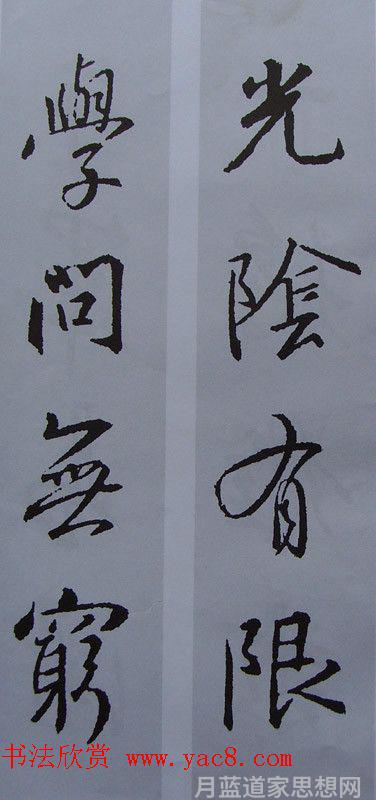 光陰有限
學問無窮
书法欣赏 www.yac8.com
月蓝道家思想网